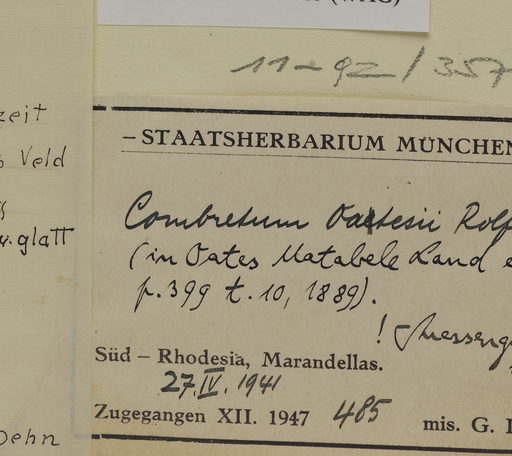 (WAG)
11-92/357
zeit
Veld
u. glatt
Dehn
– STAATSHERBARIUM MÜNCHEN
Combretum Oatesii Rolf
(in Oates Matabele Land e
p. 399 t. 10, 1889).
! Suesseng
Süd – Rhodesia, Marandellas.
27.IV. 1941
Zugegangen XII. 1947 485 mis. G.